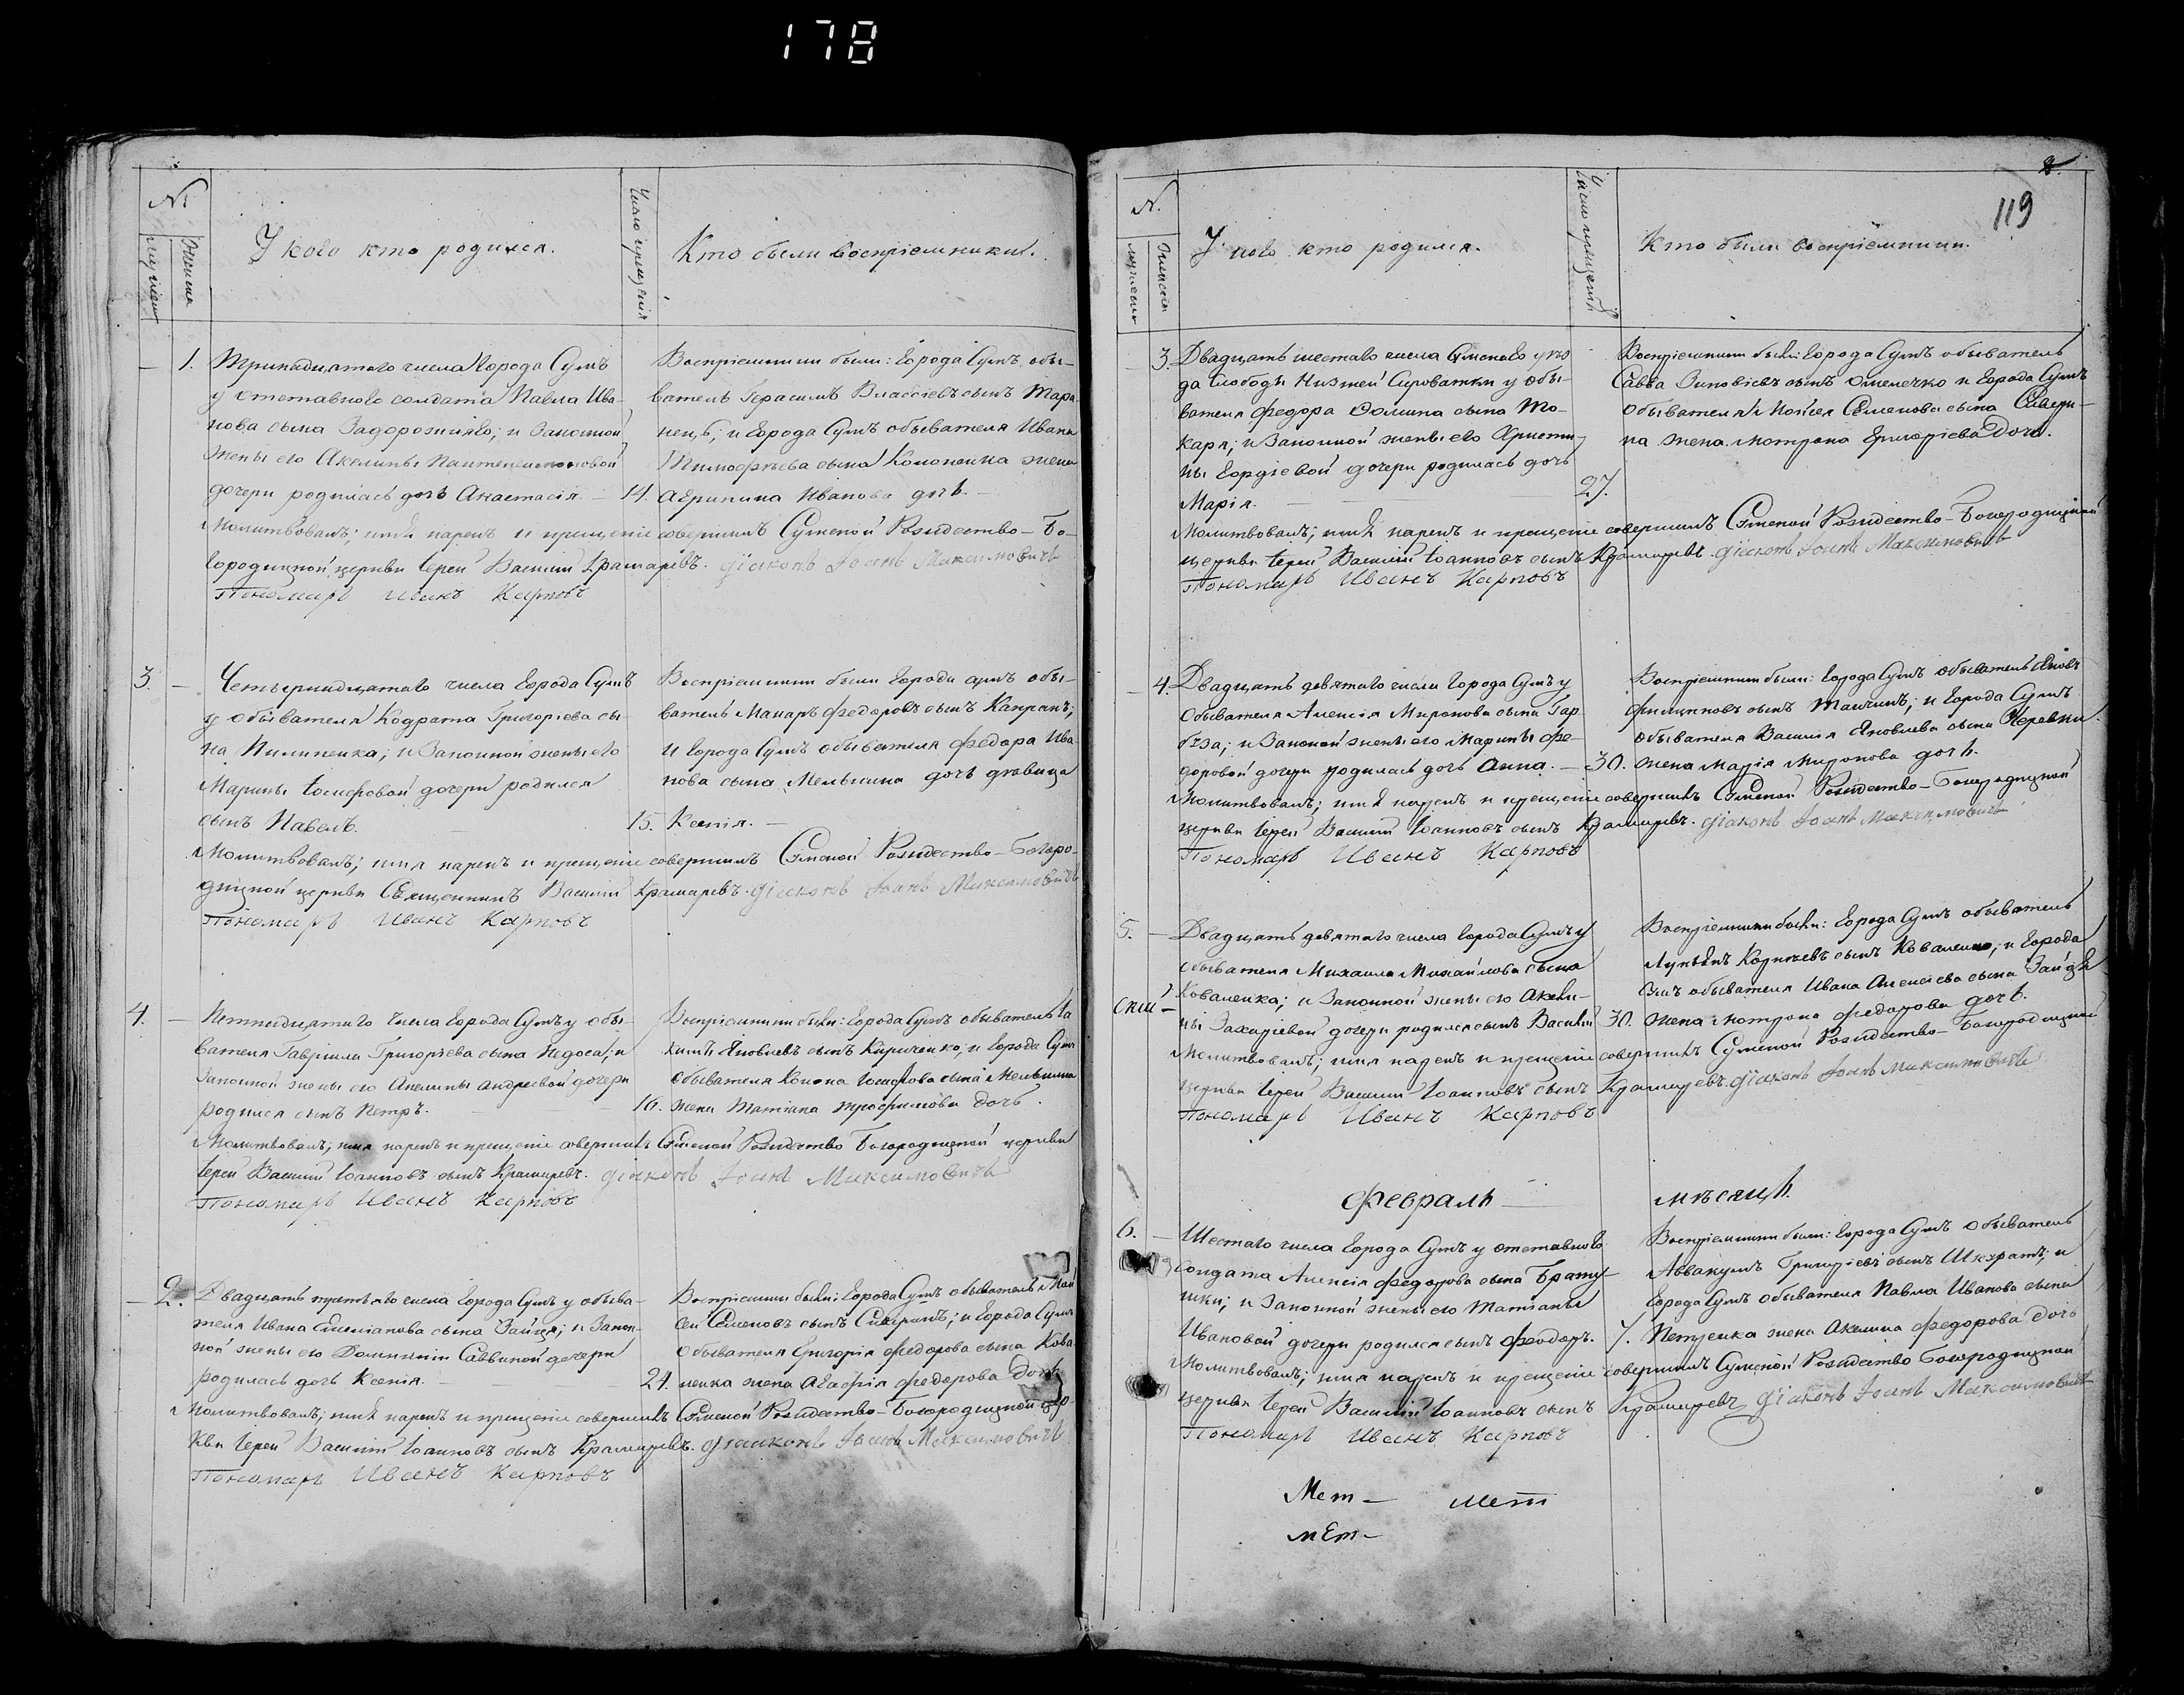 178
№
мужеска
женска
У кого кто родился.
Число крещенія
Кто были воспріемники.
1. Тринадцатаго числа города Сумъ
у отставнаго солдата Павла Ива-
нова сына Задорожняго; и законной
жены его Акелины Пантелеимоновой
дочери родилась дочь Анастасія. — 14.
Воспріемники были: города Сумъ обы-
ватель Герасимъ Власіевъ сынъ Тара-
нецъ, и города Сумъ обывателя Ивана
Тимофѣева сына Кононенка жена
Агрипина Иванова дочь. —
Молитвовалъ; имя нарекъ и крещеніе совершилъ Сумской Рождество-Бо-
городичной церкви Іерей Василій Крамаревъ. Діаконъ Іоанъ Максимовичъ
Пономарь Иванъ Карповъ
3. — Четырнадцатаго числа города Сумъ
у обывателя Кодрата Григорієва сы-
на Пилипенка; и законной жены его
Марины Іосифовой дочери родился
сынъ Павелъ. — 15.
Воспріемники были города Сумъ обы-
ватель Макаръ Федоровъ сынъ Капранъ;
и города Сумъ обывателя Федора Ива-
нова сына Мельника дочь дѣвица
Ксенія. —
Молитвовалъ; имя нарекъ и крещеніе совершилъ Сумской Рождество-Богоро-
дичной церкви Священникъ Василій Крамаревъ. Діаконъ Іоанъ Максимовичъ
Пономарь Иванъ Карповъ
4. — Пятнадцатаго числа города Сумъ у обы-
вателя Гавріила Григорьева сына Недоса; и
законной жены его Акелины Андреевой дочери
родился сынъ Петръ. — 16.
Воспріемники были: города Сумъ обыватель Іа
кимъ Яковлевъ сынъ Кириченко; и города Сумъ
обывателя Конона Іосифова сына Мельника
жена Татіана Трофимова дочь.
Молитвовалъ; имя нарекъ и крещеніе совершилъ Сумской Рождество Богородичной церкви
Іерей Василій Іоанновъ сынъ Крамаревъ. Діаконъ Іоанъ Максимовичъ
Пономарь Иванъ Карповъ
— 2. Двадцать третьяго числа города Сумъ у обыва-
теля Ивана Емеліанова сына Зайця; и закон-
ной жены его Домникіи Саввиной дочери
родилась дочь Ксенія. — 24.
Воспріемники были: города Сумъ обыватель Мои
сей Семеновъ сынъ; и города Сумъ
обывателя Григорія Федорова сына Кова
ленка жена Агафія Федорова дочь
Молитвовалъ; имя нарекъ и крещеніе совершилъ Сумской Рождество-Богородичной цер
кви Іерей Василій Іоанновъ сынъ Крамаревъ. Діаконъ Іоанъ Максимовичъ
Пономарь Иванъ Карповъ
119
№
мужеска
женска
У кого кто родился.
Число крещенія
Кто были воспріемники.
— 3. Двадцать шестаго числа Сумскаго уѣз
да слободы Нижней Сыроватки у обы-
вателя Федора Фомина сына То-
каря; и законной жены его Христи-
ны Гордіевой дочери родилась дочь
Марія. — 27.
Воспріемники были: города Сумъ обыватель
Савва Зиновіевъ сынъ Омелечко и города Сумъ
обывателя Моисея Семенова сына
жена Мотрона Григоріева дочь.
Молитвовалъ; имя нарекъ и крещеніе совершилъ Сумской Рождество-Богородичной
церкви Іерей Василій Іоанновъ сынъ Крамаревъ. Діаконъ Іоанъ Максимовичъ
Пономарь Иванъ Карповъ
— 4. Двадцать девятаго числа города Сумъ у
обывателя Алексія Миронова сына Гар
буза; и законной жены его Марины Фе-
доровой дочери родилась дочь Анна. — 30.
Воспріемники были: города Сумъ обыватель Яковъ
Филиповъ сынъ; и города Сумъ
обывателя Василія Яковлева сына Черевка
жена Марія Миронова дочь.
Молитвовалъ; имя нарекъ и крещеніе совершилъ Сумской Рождество-Богородичной
церкви Іерей Василій Іоанновъ сынъ Крамаревъ. Діаконъ Іоанъ Максимовичъ
Пономарь Иванъ Карповъ
5. — Двадцать девятаго числа города Сумъ у
обывателя Михаила Михайлова сына
Коваленка; и законной жены его Акели-
ны Захаріевой дочери родился сынъ Василій 30.
Воспріемники были: города Сумъ обыватель
Лукьянъ Корнѣевъ сынъ Коваленко; и города
Сумъ обывателя Ивана Алексіева сына Зайця
жена Мотрона Федорова дочь.
Молитвовалъ; имя нарекъ и крещеніе совершилъ Сумской Рождество-Богородичной
церкви Іерей Василій Іоанновъ сынъ Крамаревъ. Діаконъ Іоанъ Максимовичъ
Пономарь Иванъ Карповъ
Февраль — мѣсяцъ.
6. — Шестаго числа города Сумъ у отставнаго
солдата Алексія Федорова сына Брату-
шки; и законной жены его Татіаны
Ивановой дочери родился сынъ Феодоръ. 7.
Воспріемники были: города Сумъ обыватель
Аввакумъ Григоріевъ сынъ Шкуратъ; и
города Сумъ обывателя Павла Иванова сына
Петренка жена Акелина Федорова дочь
Молитвовалъ; имя нарекъ и крещеніе совершилъ Сумской Рождество Богородичной
церкви Іерей Василій Іоанновъ сынъ Крамаревъ Діаконъ Іоанъ Максимовичъ
Пономарь Иванъ Карповъ